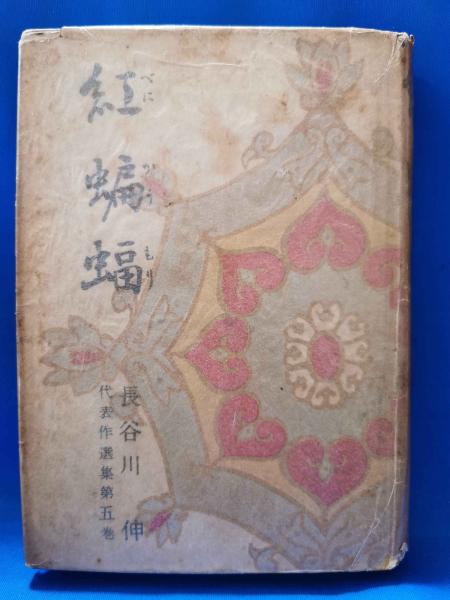 紅蝙蝠
べにかうもり
長谷川 伸
代表作選集第五巻